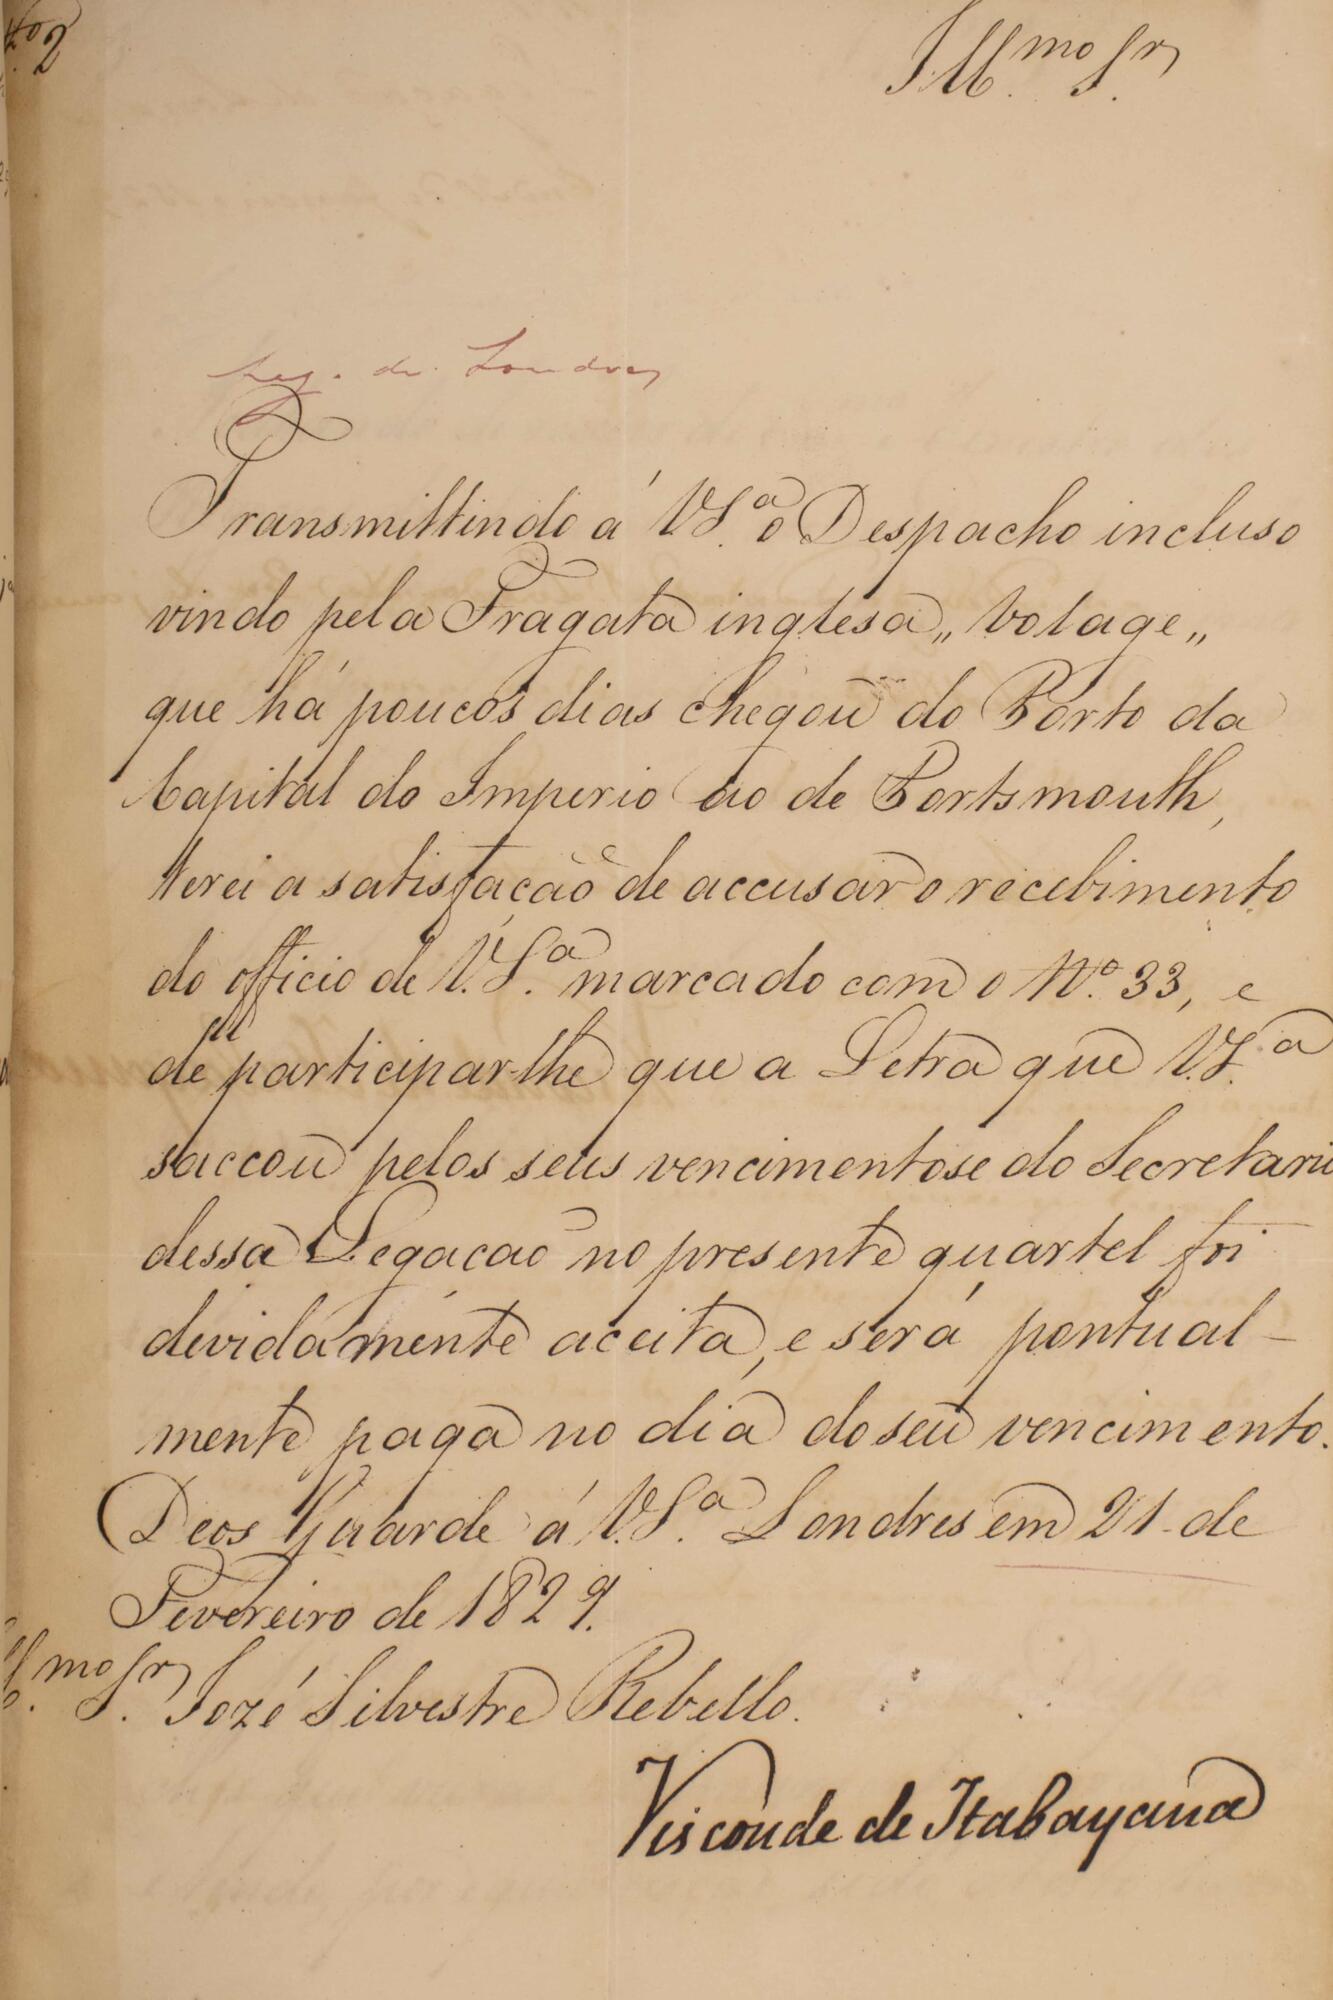 N.º 2
Ill.mo Sr.
Leg. de Londres
Transmittindo á V.S.ª o Despacho incluso
vindo pela Fragata inglesa „ Volage „
que há poucos dias chegou do Porto da
Capital do Imperio ao de Portsmouth,
terei a satisfação de accusar o recebimento
do officio de V.S.ª marcado com o N.º 33, e
de participar-lhe que a Letra que V.S.ª
saccou pelos seus vencimentos e do Secretario
dessa Legação no presente quartel foi
devidamente aceita, e será pontual-
mente paga no dia do seu vencimento.
Deos Guarde á V.S.ª Londres em 21 de
Fevereiro de 1829.
Ill.mo Sr. Jozé Silvestre Rebello.
Visconde de Itabayana